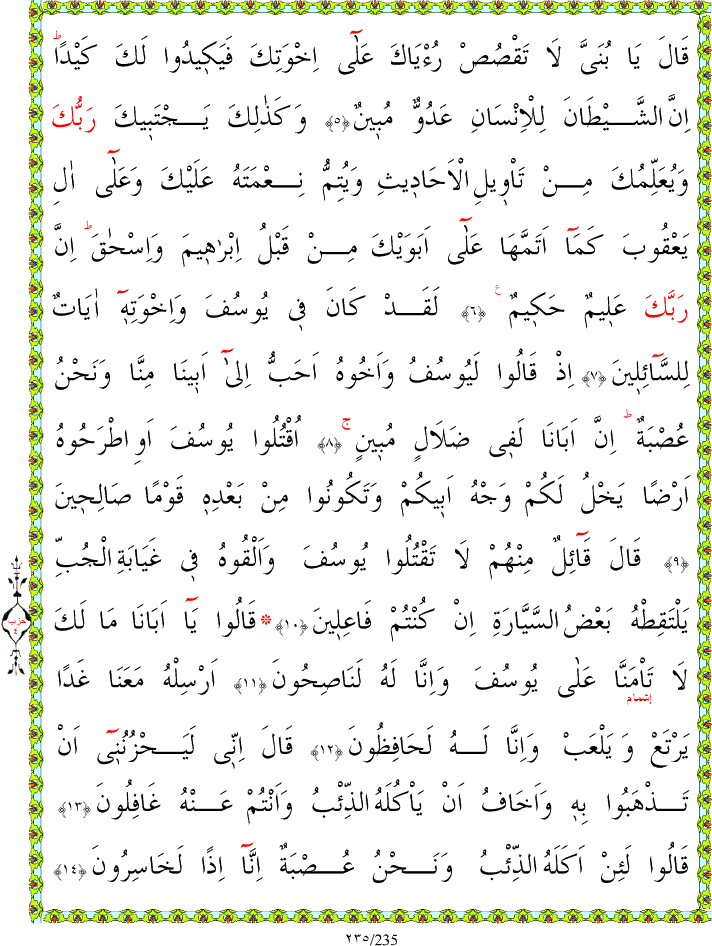 قَالَ يَا بُنَىَّ لَا تَقْصُصْ رُءْيَاكَ عَلٰٓى اِخْوَتِكَ فَيَكٖيدُوا لَكَ كَيْدًاؕ
اِنَّ الشَّيْطَانَ لِلْاِنْسَانِ عَدُوٌّ مُبٖينٌ ﴿٥﴾ وَكَذٰلِكَ يَجْتَبٖيكَ رَبُّكَ
وَيُعَلِّمُكَ مِنْ تَاْوٖيلِ الْاَحَادٖيثِ وَيُتِمُّ نِعْمَتَهُ عَلَيْكَ وَعَلٰٓى اٰلِ
يَعْقُوبَ كَمَٓا اَتَمَّهَا عَلٰٓى اَبَوَيْكَ مِنْ قَبْلُ اِبْرٰهٖيمَ وَاِسْحٰقَؕ اِنَّ
رَبَّكَ عَلٖيمٌ حَكٖيمٌ ع ﴿٦﴾ لَقَدْ كَانَ فٖى يُوسُفَ وَاِخْوَتِهٖٓ اٰيَاتٌ
لِلسَّٓائِلٖينَ ﴿٧﴾ اِذْ قَالُوا لَيُوسُفُ وَاَخُوهُ اَحَبُّ اِلٰٓى اَبٖينَا مِنَّا وَنَحْنُ
عُصْبَةٌؕ اِنَّ اَبَانَا لَفٖى ضَلَالٍ مُبٖينٍۚ ﴿٨﴾ اُقْتُلُوا يُوسُفَ اَوِ اطْرَحُوهُ
اَرْضًا يَخْلُ لَكُمْ وَجْهُ اَبٖيكُمْ وَتَكُونُوا مِنْ بَعْدِهٖ قَوْمًا صَالِحٖينَ
﴿٩﴾ قَالَ قَٓائِلٌ مِنْهُمْ لَا تَقْتُلُوا يُوسُفَ وَاَلْقُوهُ فٖى غَيَابَةِ الْجُبِّ
حزب ٤
يَلْتَقِطْهُ بَعْضُ السَّيَّارَةِ اِنْ كُنْتُمْ فَاعِلٖينَ ﴿١٠﴾ * قَالُوا يَٓا اَبَانَا مَا لَكَ
لَا تَاْمَنَّا عَلٰى يُوسُفَ وَاِنَّا لَهُ لَنَاصِحُونَ ﴿١١﴾ اَرْسِلْهُ مَعَنَا غَدًا
إشمام
يَرْتَعْ وَيَلْعَبْ وَاِنَّا لَهُ لَحَافِظُونَ ﴿١٢﴾ قَالَ اِنّٖى لَيَحْزُنُنٖٓى اَنْ
تَذْهَبُوا بِهٖ وَاَخَافُ اَنْ يَاْكُلَهُ الذِّئْبُ وَاَنْتُمْ عَنْهُ غَافِلُونَ ﴿١٣﴾
قَالُوا لَئِنْ اَكَلَهُ الذِّئْبُ وَنَحْنُ عُصْبَةٌ اِنَّٓا اِذًا لَخَاسِرُونَ ﴿١٤﴾
٢٣٥/235